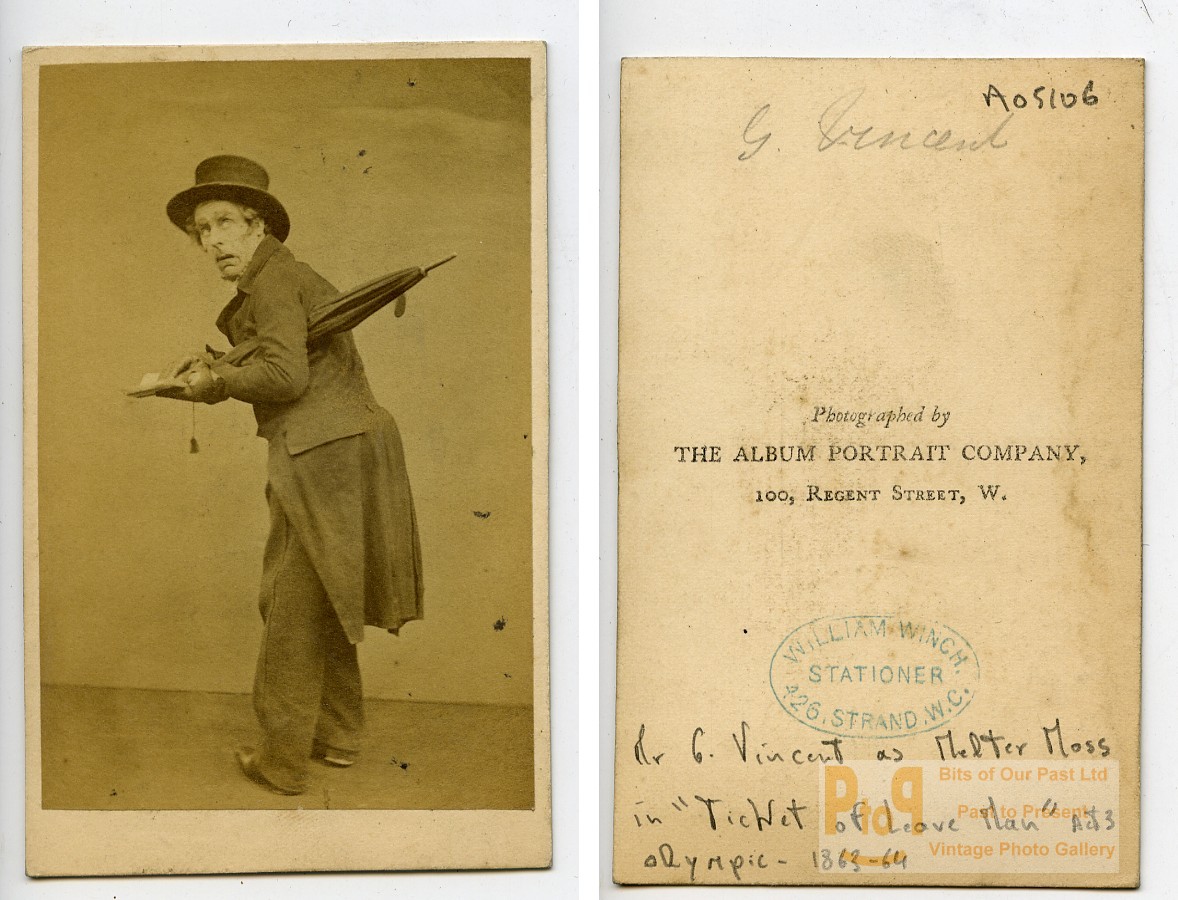 A05106
G. Vincent
Photographed by
THE ALBUM PORTRAIT COMPANY,
100, REGENT STREET, W.
WILLIAM WINCH.
STATIONER
426, STRAND. W.C.
Mr G. Vincent as Melter Moss
in "Ticket of Leave Man" Act 3
Olympic - 1863-64
PtoP
Bits of Our Past Ltd
Past to Present
Vintage Photo Gallery